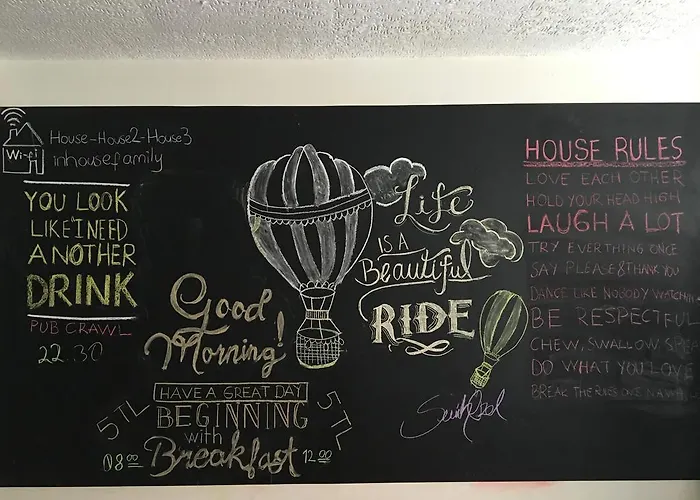 House-House2-House3
Wi-fi
inhousefamily
YOU LOOK
LIKE I NEED
ANOTHER
DRINK
PUB CRAWL
22.30
Good
Morning!
HAVE A GREAT DAY
BEGINNING
with
Breakfast
5TL
5TL
08 00
12 00
Life
IS A
Beautiful
RIDE
HOUSE RULES
LOVE EACH OTHER
HOLD YOUR HEAD HIGH
LAUGH A LOT
TRY EVERTHING ONCE
SAY PLEASE & THANK YOU
DANCE LIKE NOBODY WATCHIN
BE RESPECTFUL
CHEW, SWALLOW,
DO WHAT YOU LOVE
BREAK THE RULES ONCE IN A